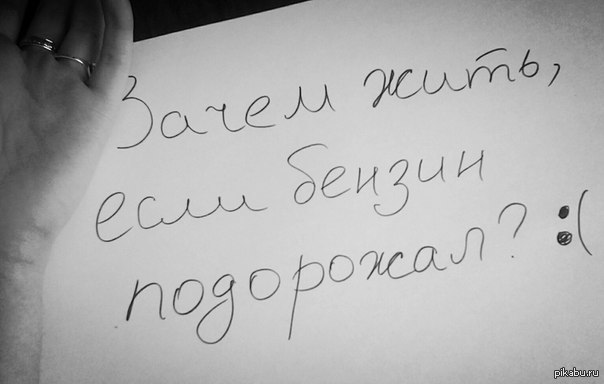 Зачем жить,
если бензин
подорожал? :(
pikabu.ru